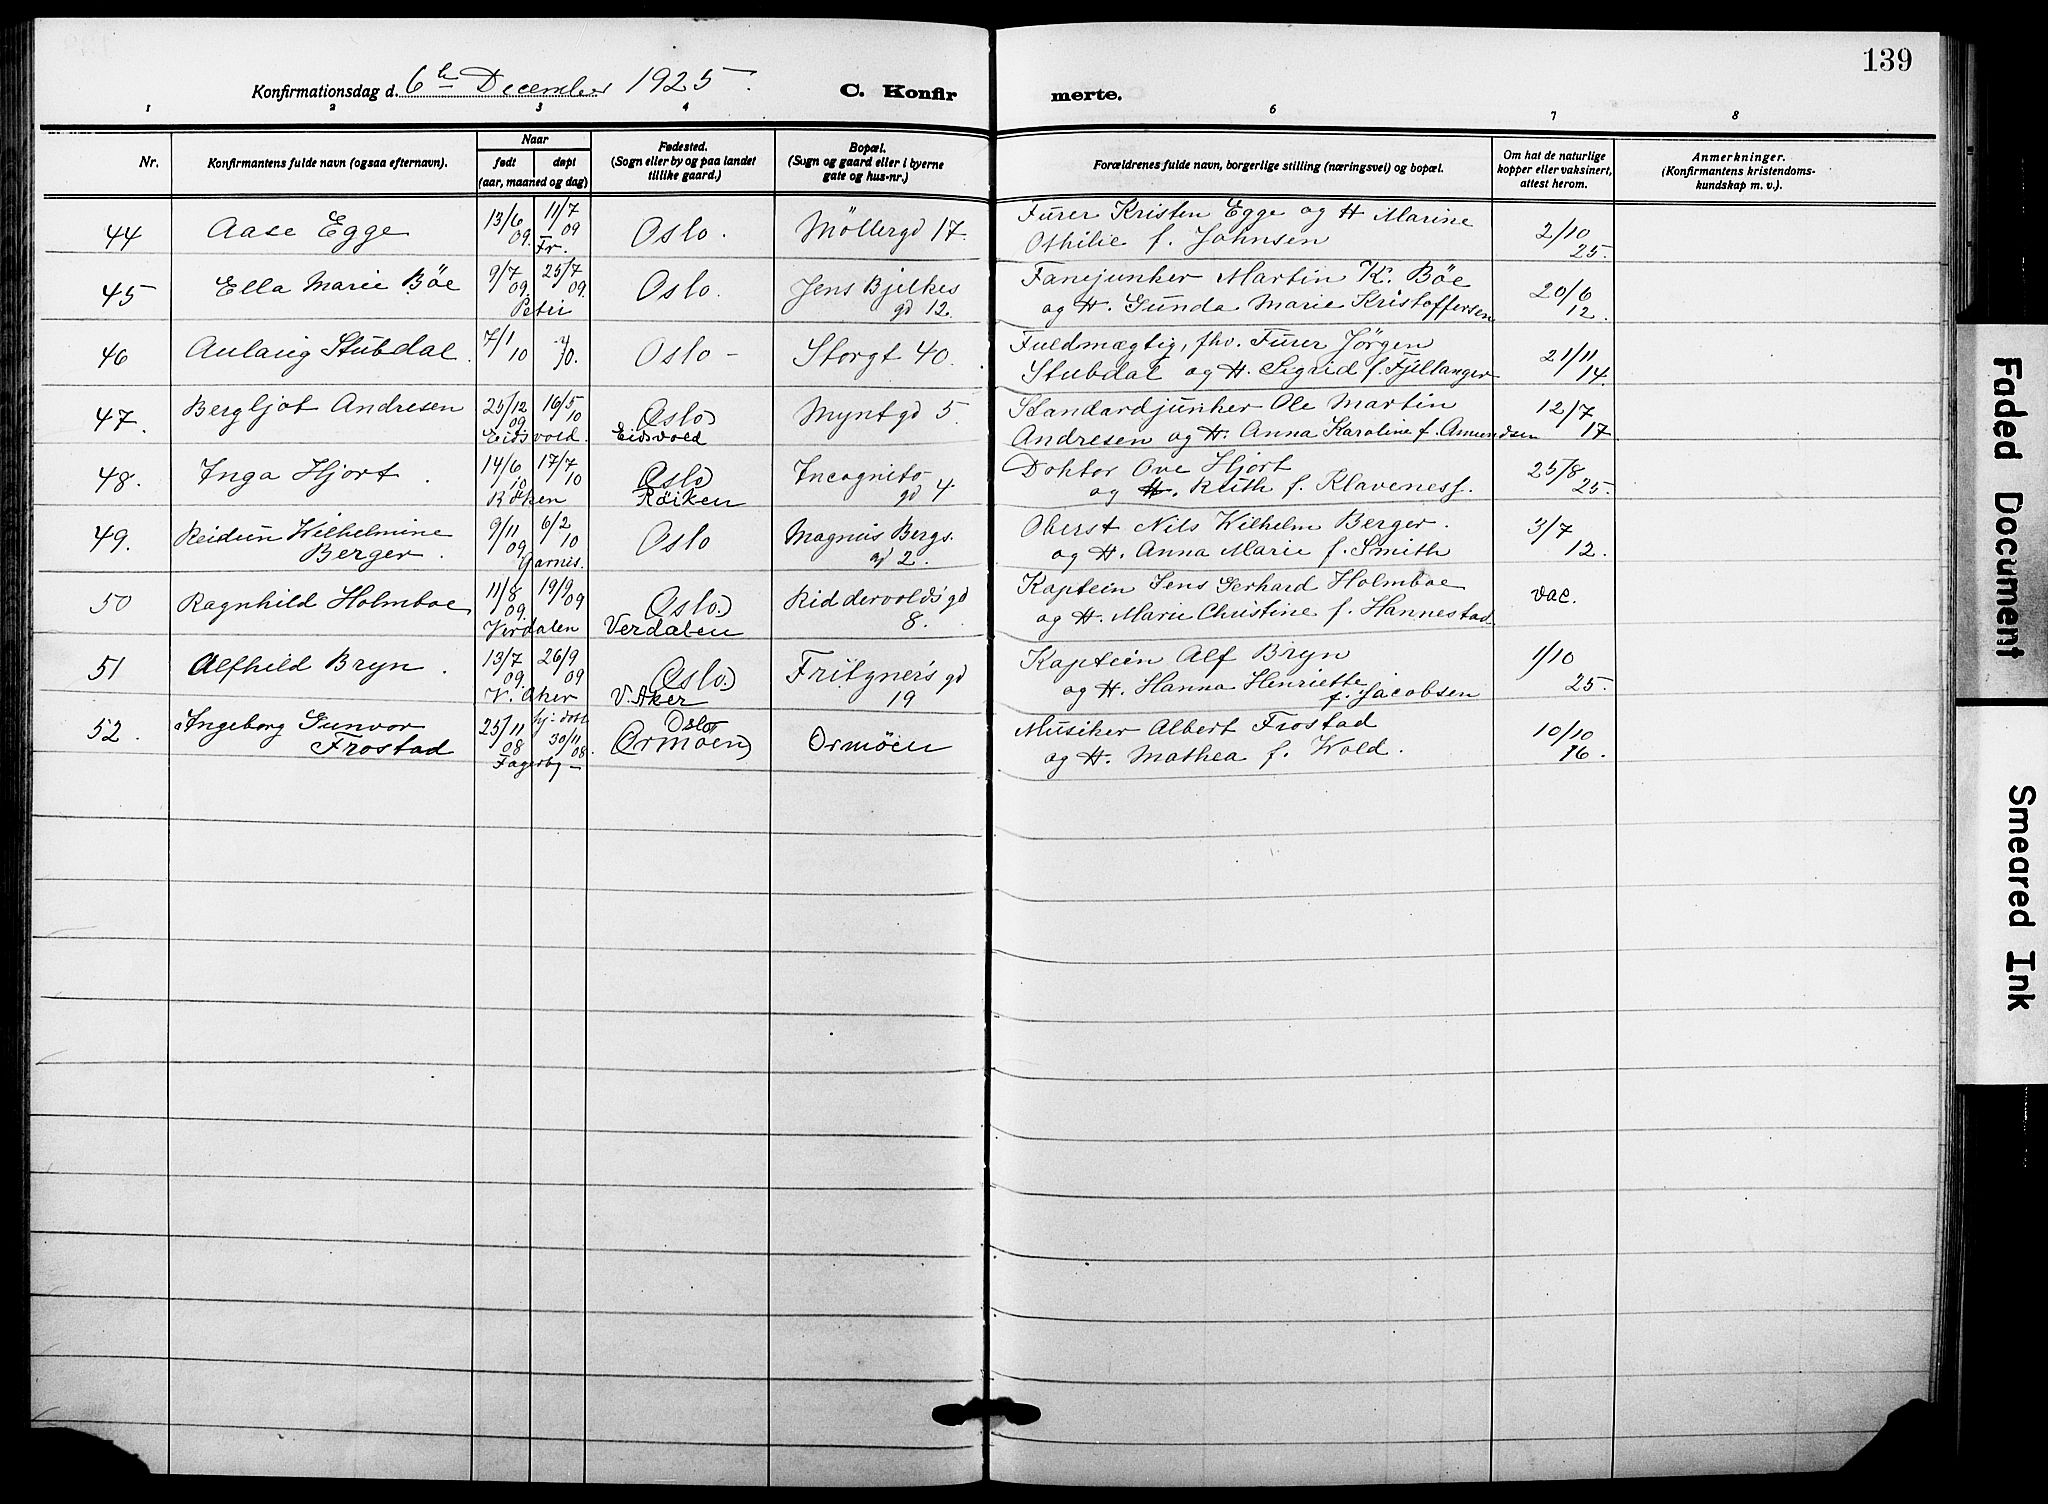 139
Konfirmationsdag d. 6te December 1925.
C. Konfirmerte.
1 2 3 4 5 6 7 8
Nr.
Konfirmantens fulde navn (ogsaa efternavn).
Naar
født
døpt
(aar, maaned og dag)
Fødested.
(Sogn eller by og paa landet
tillike gaard.)
Bopæl.
(Sogn og gaard eller i byerne
gate og hus-nr.)
Forældrenes fulde navn, borgerlige stilling (næringsvei) og bopæl.
Om hat de naturlige
kopper eller vaksinert,
attest herom.
Anmerkninger.
(Konfirmantens kristendoms-
kundskap m. v.).
44 Aase Egge 13/6 09. 11/7 09 Fr. Oslo. Möllergd 17. Furer Kristen Egge og H Marine
Othilie f. Johnsen 2/10 25.
45 Ella Marie Bøe 9/7 09. 25/7 09. Petri Oslo. Jens Bjelkes
gd 12. Fanejunker Martin K. Bøe
og H. Gunda Marie Kristoffersen 20/6 12.
46 Aulaug Stubdal. 7/1 10 Oslo - Storgt 40. Fuldmægtig, fhv. Furer Jørgen
Stubdal og H. Sigrid f. Fjellanger 21/11 14.
47. Bergljot Andresen 25/12 09 16/5 10 Eidsvold. Oslo)
Eidsvold Myntgd 5 Standardjunker Ole Martin
Andresen og H. Anna Karoline f. Amundsen 12/7 17.
48. Inga Hjort. 14/6 10 17/7 10 Röken Oslo
Röiken Incognito
gd 4 Doktor Ove Hjort
og H. Ruth f. Klaveness. 25/8 25.
49. Reidun Wilhelmine
Berger. 9/11 09 6/2 10 Garnis. Oslo Magnus Bergs.
gd 2. Oberst Nils Wilhelm Berger.
og H. Anna Marie f. Smith 3/7 12.
50 Ragnhild Holmboe 11/8 09. 19/9 09 Verdalen Oslo.)
Verdalen Riddervolds gd
8. Kaptein Jens Gerhard Holmboe
og H. Marie Christine f. Hannestad vac.
51 Alfhild Bryn. 13/7 09 26/9 09 V. Aker Oslo.)
V. Aker Fritzners gd
19 Kaptein Alf Bryn
og H. Hanna Henriette
f. Jacobsen 1/10 25.
52. Ingeborg Gunvor
Frostad 25/11 08 hj. døbt 30/11 08. Fagerby - Oslo
(Ormöen) Ormöen Musiker Albert Frostad
og H. Mathea f. Wold. 10/10 16.
Faded Document
Smeared Ink